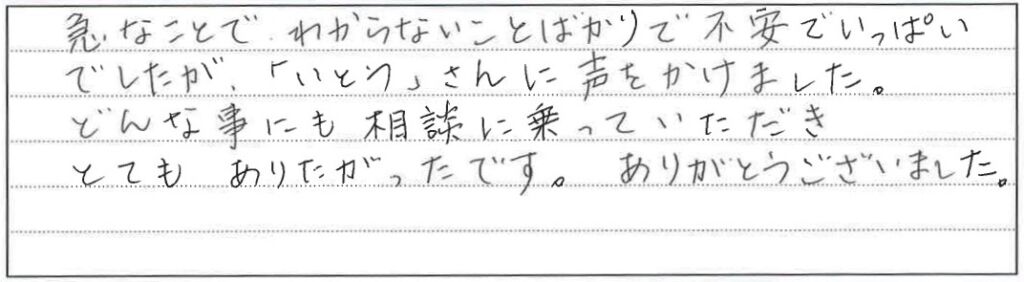 急なことで、わからないことばかりで不安でいっぱい
でしたが、「いとう」さんに声をかけました。
どんな事にも相談に乗っていただき
とても ありたがったです。 ありがとうございました。